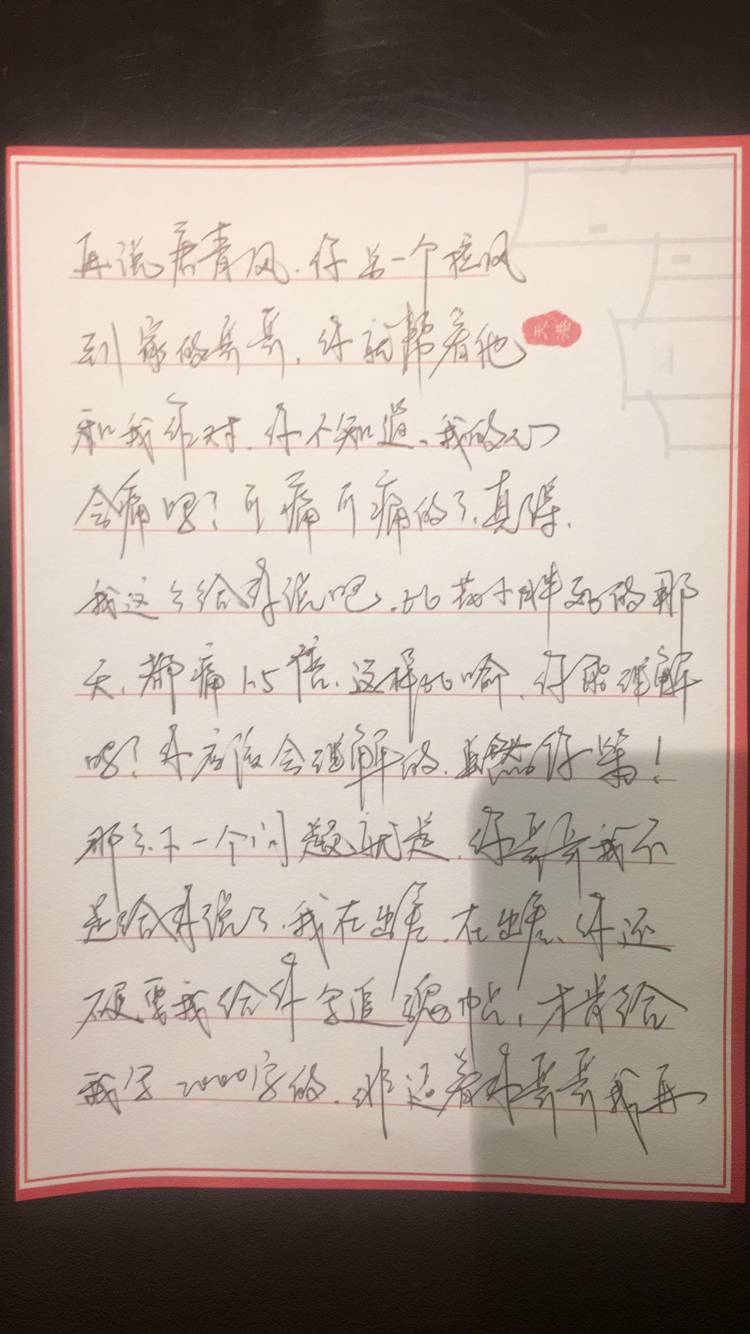 再说君青风.你另一个
到家的哥哥,你就帮着他
天
和我作对.你不知道、我的心
会痛吗?可痛可痛的了、真
我这么给你说吧、比
的那
天、都痛1.5倍、这样比喻、你能理解
吗?你应该会理解的、虽然你笨!
那么下一个问题就是、你哥哥我不
是给你说了、我在出差、在出差、你还
硬要我给你写追魂帖,才肯给
我写2000字的、非逼着你哥哥我再